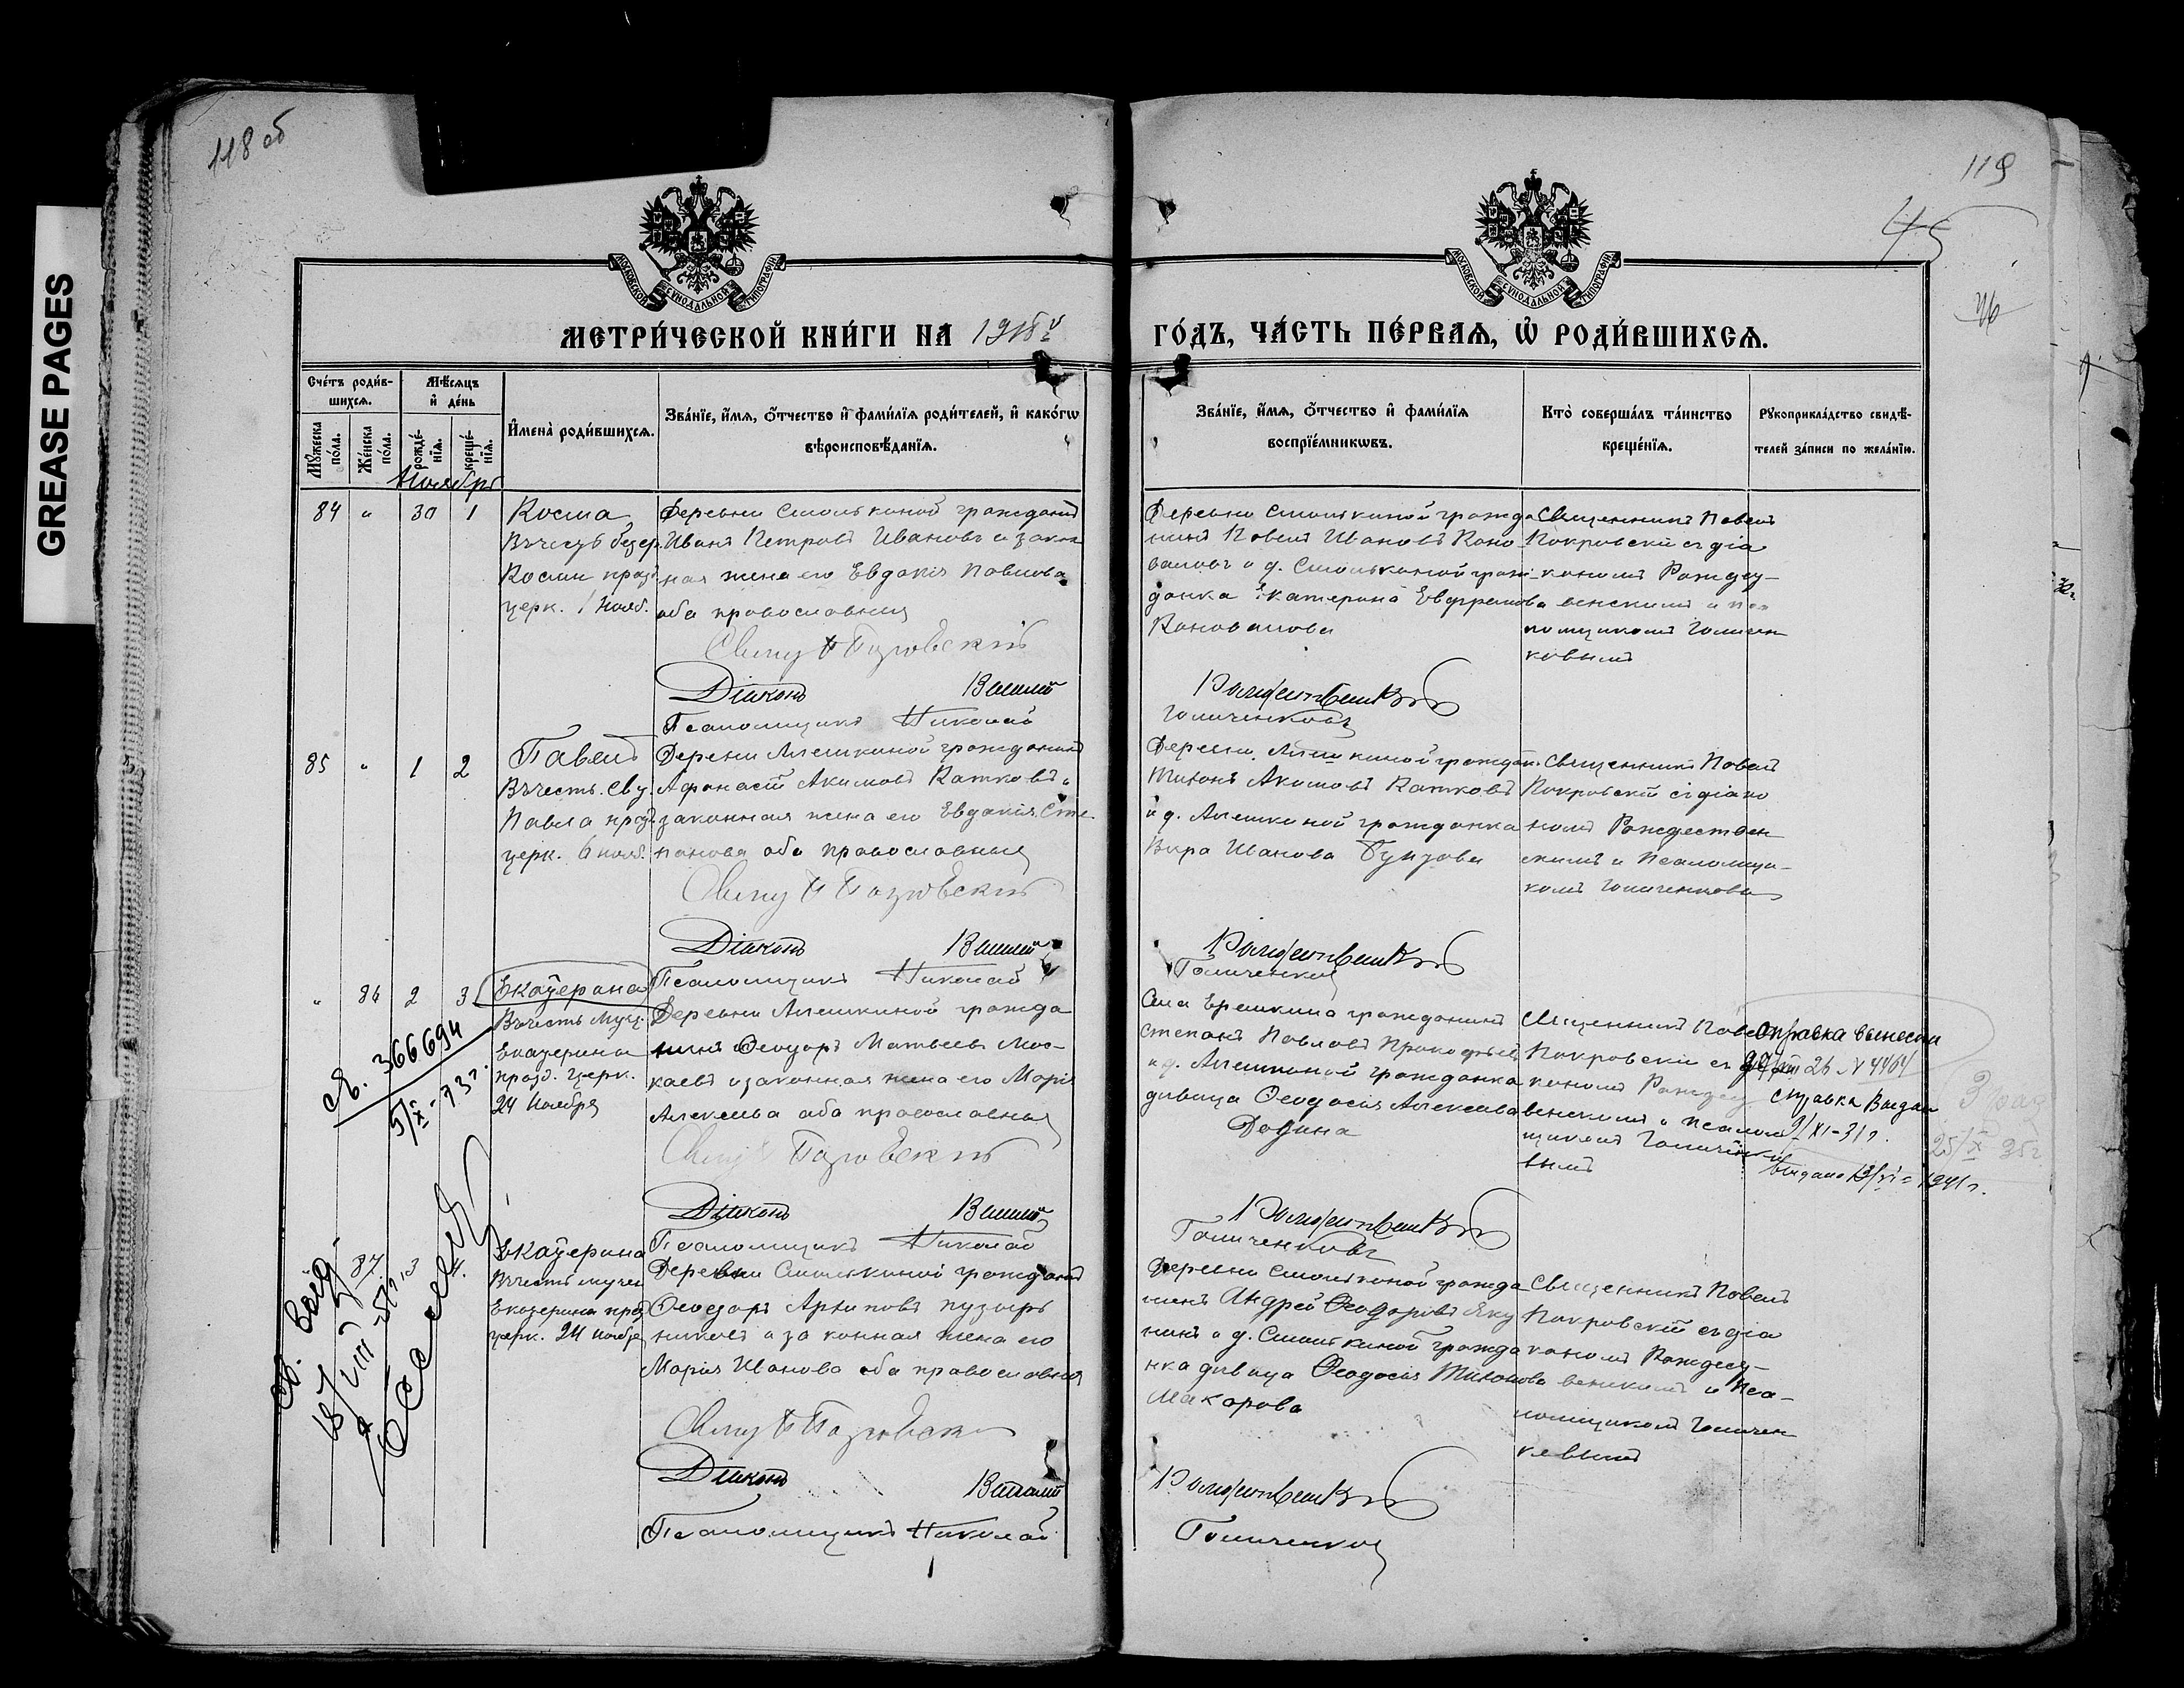 GREASE PAGES
118 об
119
45
46
МОСКОВСКОЙ СѴНОДАЛЬНОЙ ТИПОГРАФІИ
МОСКОВСКОЙ СѴНОДАЛЬНОЙ ТИПОГРАФІИ
МЕТРИ́ЧЕСКОЙ КНИ́ГИ НА 1918й
ГО́ДЪ, ЧА́СТЬ ПЕ́РВАЯ, Ѡ РОДИ́ВШИХСЯ.
Сче́тъ роди́в-
шихся.
Мѣ́сяцъ
и҆ де́нь
Мꙋ́жеска
по́ла.
Же́нска
по́ла.
рожде́-
нїя.
креще́-
нїя.
И҆мена̀ роди́вшихся.
Зва́нїе, и҆́мя, ѻ҆́тчество и҆ фами́лїя роди́телей, и҆ како́гѡ
вѣроисповѣ́данїя.
Зва́нїе, и҆́мя, ѻ҆́тчество и҆ фами́лїя
воспрїе́мникѡвъ.
Кто̀ соверша́лъ та́инство
креще́нїя.
Рꙋкоприкла́дство свидѣ́-
телей за́писи по жела́нїю.
Ноябрь
84 " 30 1
Косма
Въ честь безср.
Космы празд.
церк. 1 Нояб.
Деревни Смолькиной гражданинъ
Иванъ Петровъ Ивановъ и закон
ная жена его Евдокія Павлова
оба православныя
Свящ П Покровскій
Діаконъ Василій
Псаломщикъ Николай
Деревни Смолькиной гражда
нинъ Павелъ Ивановъ Коно
валовъ и д. Смолькиной граж-
данка Екатерина Евфремова
Коновалова
Рождественскій
Голиченковъ
Священникъ Павелъ
Покровскій съ діа
кономъ Рождест-
венскимъ и пса
ломщикомъ Голичен
ковымъ
85 " 1 2
Павелъ
Въ честь Свят.
Павла празд.
церк. 6 нояб.
Деревни Алешкиной гражданинъ
Афанасій Акимовъ Катковъ и
законная жена его Евдокія Сте
панова оба православныя
Свящ П Покровскій
Діаконъ Василій
Псаломщикъ Николай
Деревни Алешкиной граждан.
Тихонъ Акимовъ Катковъ
и д. Алешкиной гражданка
Вера Иванова
Рождественскій
Голиченковъ
Священникъ Павелъ
Покровскій съ діако
номъ Рождествен
скимъ и Псаломщи-
комъ Голиченковы
" 86 2 3
Екатерина
Въ честь Муч.
Екатерины
празд. церк.
24 Ноября
Деревни Алешкиной гражда
нинъ Феодоръ Матвеевъ Мос-
каевъ и законная жена его Марія
Алексеева оба православныя
Свящ П Покровскій
Діаконъ Василій
Псаломщикъ Николай
Села Ерешкина гражданинъ
Степанъ Павловъ Прокофьевъ
и д. Алешкиной гражданка
дѣвица Феодосія Алексеева
Рождественскій
Голиченковъ
Священникъ Павелъ
Покровскій съ діа
кономъ Рождест
венскимъ и псалом
щикомъ Голиченко
вымъ
Справка вынесена
26 № 4464
справка Выдан
9/XI-31 г.
25/X 35 г.
выдано 13/VI = 1941 г.
св. 366694
5/IX-73 г.
87 3
Екатерина
Въ честь мучен
Екатерины празд
церк. 24 ноября
Деревни Смолькиной гражданинъ
Феодоръ Архиповъ Пузырь
никовъ и законная жена его
Марія Иванова оба православныя
Свящ П Покровск
Діаконъ Василій
Псаломщикъ Николай
Деревни Смолькиной гражда
нинъ Андрей Феодоровъ Яку
нинъ и д. Смолькиной гражда
нка дѣвица Феодосія Тихонова
Макарова
Рождественскій
Голиченков
Священникъ Павелъ
Покровскій съ діа
кономъ Рождест-
венскимъ и Пса-
ломщикомъ Голичен
ковымъ